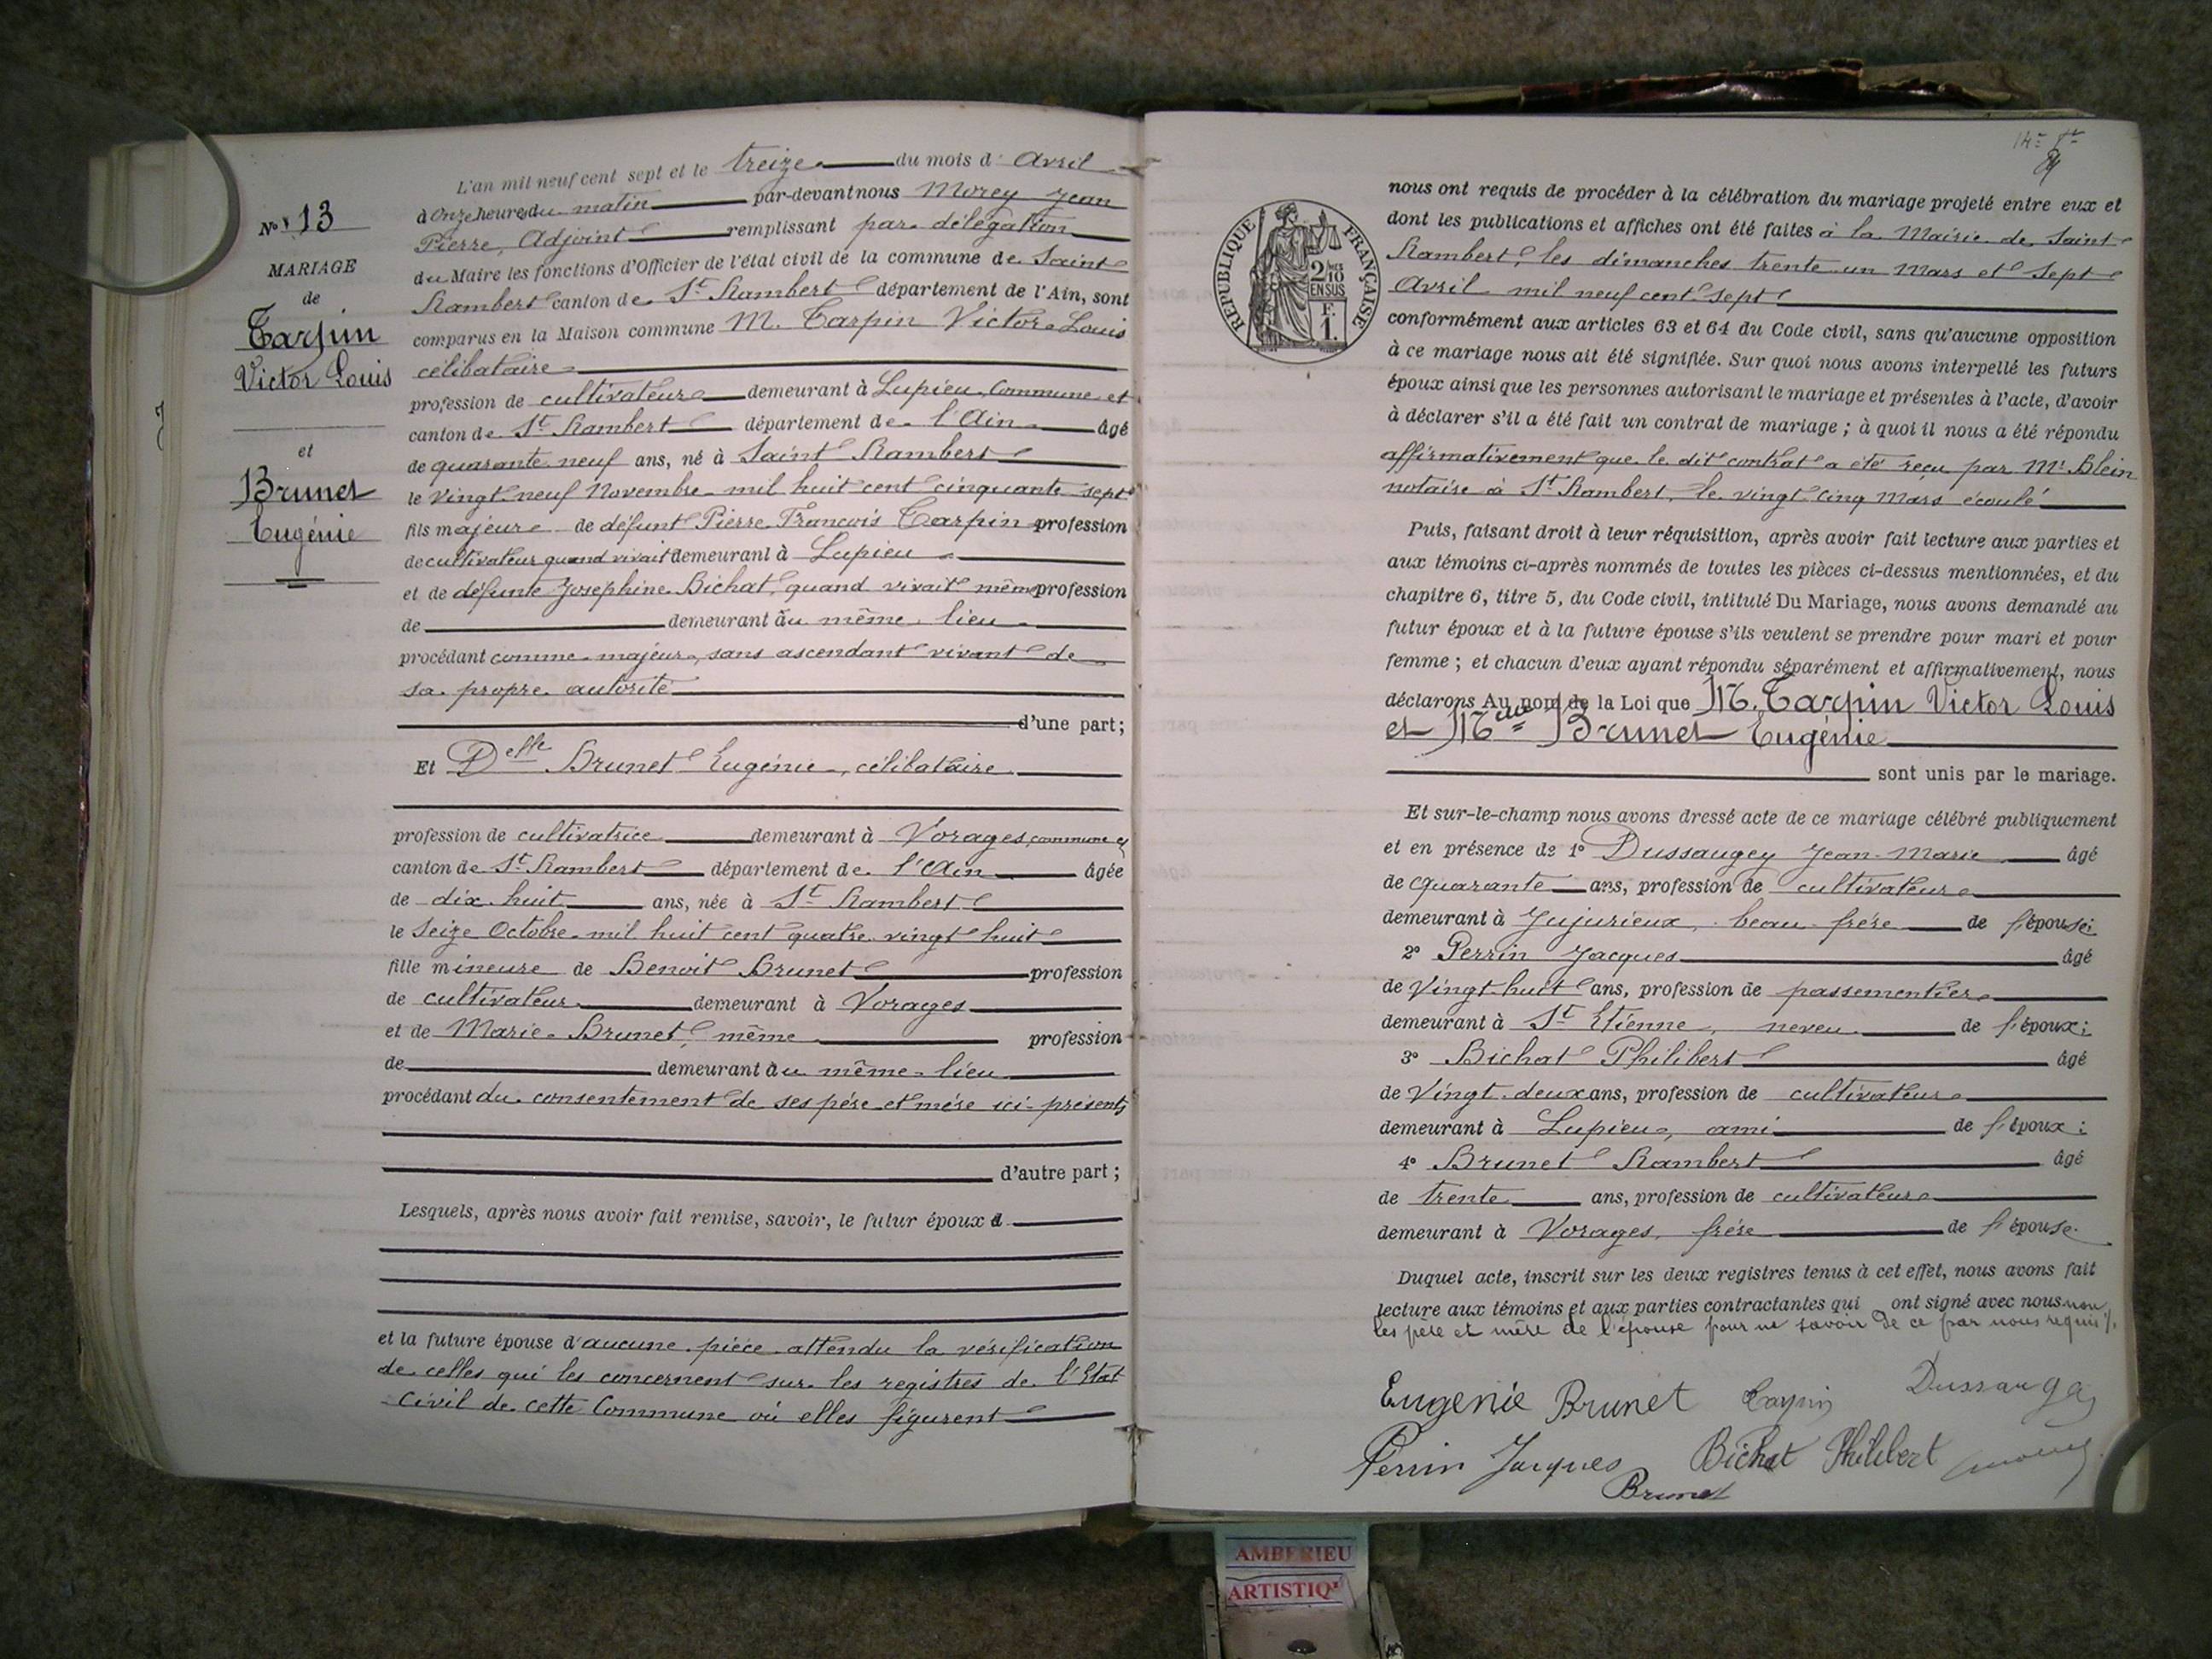 L'an mil neuf cent sept et le treize du mois d'Avril
à onze heures du matin par-devant nous Morey Jean
Pierre, Adjoint remplissant par délégation
du Maire les fonctions d'Officier de l'état civil de la commune de Saint
Rambert canton de St Rambert département de l'Ain, sont
comparus en la Maison commune M. Tarpin Victor Louis
célibataire
profession de cultivateur demeurant à Lupieu, Commune et
canton de St Rambert département de l'Ain âgé
de quarante neuf ans, né à Saint Rambert
le vingt neuf Novembre mil huit cent cinquante sept
fils majeur de défunt Pierre François Tarpin profession
de cultivateur quand vivait demeurant à Lupieu
et de défunte Joséphine Bichat, quand vivait même profession
de demeurant au même lieu
procédant comme majeur, sans ascendant vivant de
sa propre autorité
d'une part;
Et Delle Brunet Eugénie, célibataire
profession de cultivatrice demeurant à Vorages, commune et
canton de St Rambert département de l'Ain âgée
de dix huit ans, née à St Rambert
le seize Octobre mil huit cent quatre vingt huit
fille mineure de Benoit Brunet profession
de cultivateur demeurant à Vorages
et de Marie Brunet, même profession
de demeurant au même lieu
procédant du consentement de ses père et mère ici présents
d'autre part;
Lesquels, après nous avoir fait remise, savoir, le futur époux d
et la future épouse d'aucune pièce attendu la vérification
de celles qui les concernent sur les registres de l'Etat
Civil de cette Commune où elles figurent
No 13
MARIAGE
de
Tarpin
Victor Louis
et
Brunet
Eugénie
nous ont requis de procéder à la célébration du mariage projeté entre eux et
dont les publications et affiches ont été faites à la Mairie de Saint
Rambert, les dimanches trente un Mars et Sept
Avril mil neuf cent sept
conformément aux articles 63 et 64 du Code civil, sans qu'aucune opposition
à ce mariage nous ait été signifiée. Sur quoi nous avons interpellé les futurs
époux ainsi que les personnes autorisant le mariage et présentes à l'acte, d'avoir
à déclarer s'il a été fait un contrat de mariage; à quoi il nous a été répondu
affirmativement que le dit contrat a été reçu par Me Blein
notaire à St Rambert, le vingt cinq Mars écoulé
Puis, faisant droit à leur réquisition, après avoir fait lecture aux parties et
aux témoins ci-après nommés de toutes les pièces ci-dessus mentionnées, et du
chapitre 6, titre 5, du Code civil, intitulé Du Mariage, nous avons demandé au
futur époux et à la future épouse s'ils veulent se prendre pour mari et pour
femme; et chacun d'eux ayant répondu séparément et affirmativement, nous
déclarons Au nom de la Loi que M. Tarpin Victor Louis
et Melle Brunet Eugénie
sont unis par le mariage.
Et sur-le-champ nous avons dressé acte de ce mariage célébré publiquement
et en présence de 1° Dussaugey Jean-Marie âgé
de quarante ans, profession de cultivateur
demeurant à Jujurieux, beau-frère de l'épouse;
2° Perrin Jacques âgé
de vingt huit ans, profession de passementier
demeurant à St Etienne, neveu de l'époux;
3° Bichat Philibert âgé
de vingt-deux ans, profession de cultivateur
demeurant à Lupieu, ami de l'époux;
4° Brunet Rambert âgé
de trente ans, profession de cultivateur
demeurant à Vorages, frère de l'épouse.
Duquel acte, inscrit sur les deux registres tenus à cet effet, nous avons fait
lecture aux témoins et aux parties contractantes qui ont signé avec nous non
les père et mère de l'épouse pour ne savoir de ce par nous requis
Eugenie Brunet Tarpin Dussaugey
Perrin Jacques Bichat Philibert Morey
Brunet
RÉPUBLIQUE FRANÇAISE
2/10 EN SUS
F. 1.
AMBERIEU
ARTISTIQ